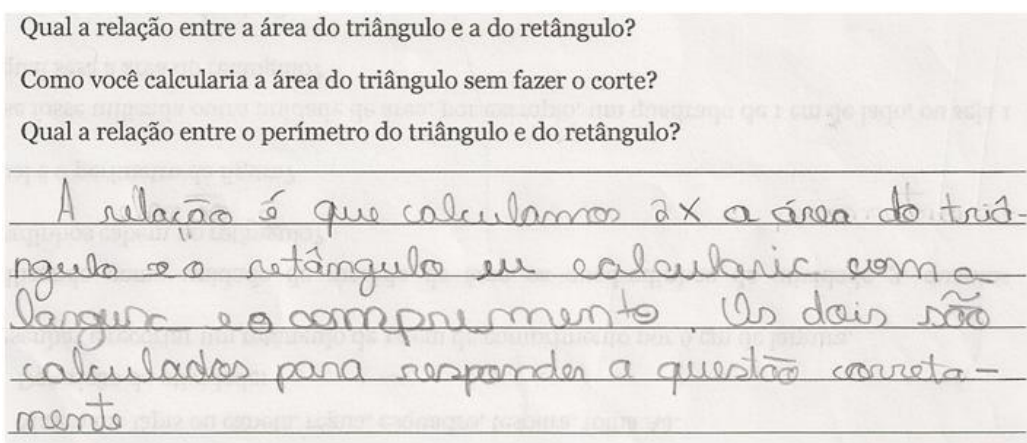 Qual a relação entre a área do triângulo e a do retângulo?
Como você calcularia a área do triângulo sem fazer o corte?
Qual a relação entre o perímetro do triângulo e do retângulo?
A relação é que calculamos 2x a área do triâ-
ngulo e o retângulo eu calcularic com a
largur e o comprimento. Os dois são
calculados para responder a questão correta-
mente